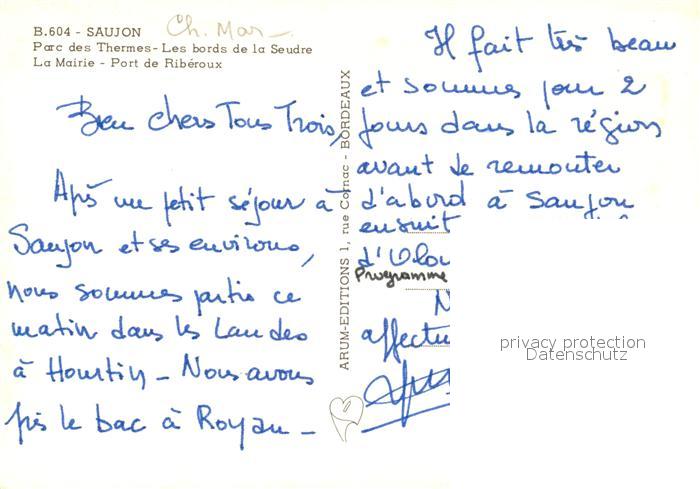 B.604 - SAUJON
Ch. Mar
Parc des Thermes - Les bords de la Seudre
La Mairie - Port de Ribéroux
Bien chers Tous Trois,
Après un petit séjour à
Saujon et ses environs,
nous sommes partis ce
matin dans les Landes
à Hourtin - Nous avons
pris le bac à Royan -
ARUM-EDITIONS 1, rue Cornac - BORDEAUX
Il fait très beau
et sommes pour 2
jours dans la région
avant de remonter
d'abord à Saujon
ensuit
d'Olo
Programme
N
affectu
privacy protection
Datenschutz